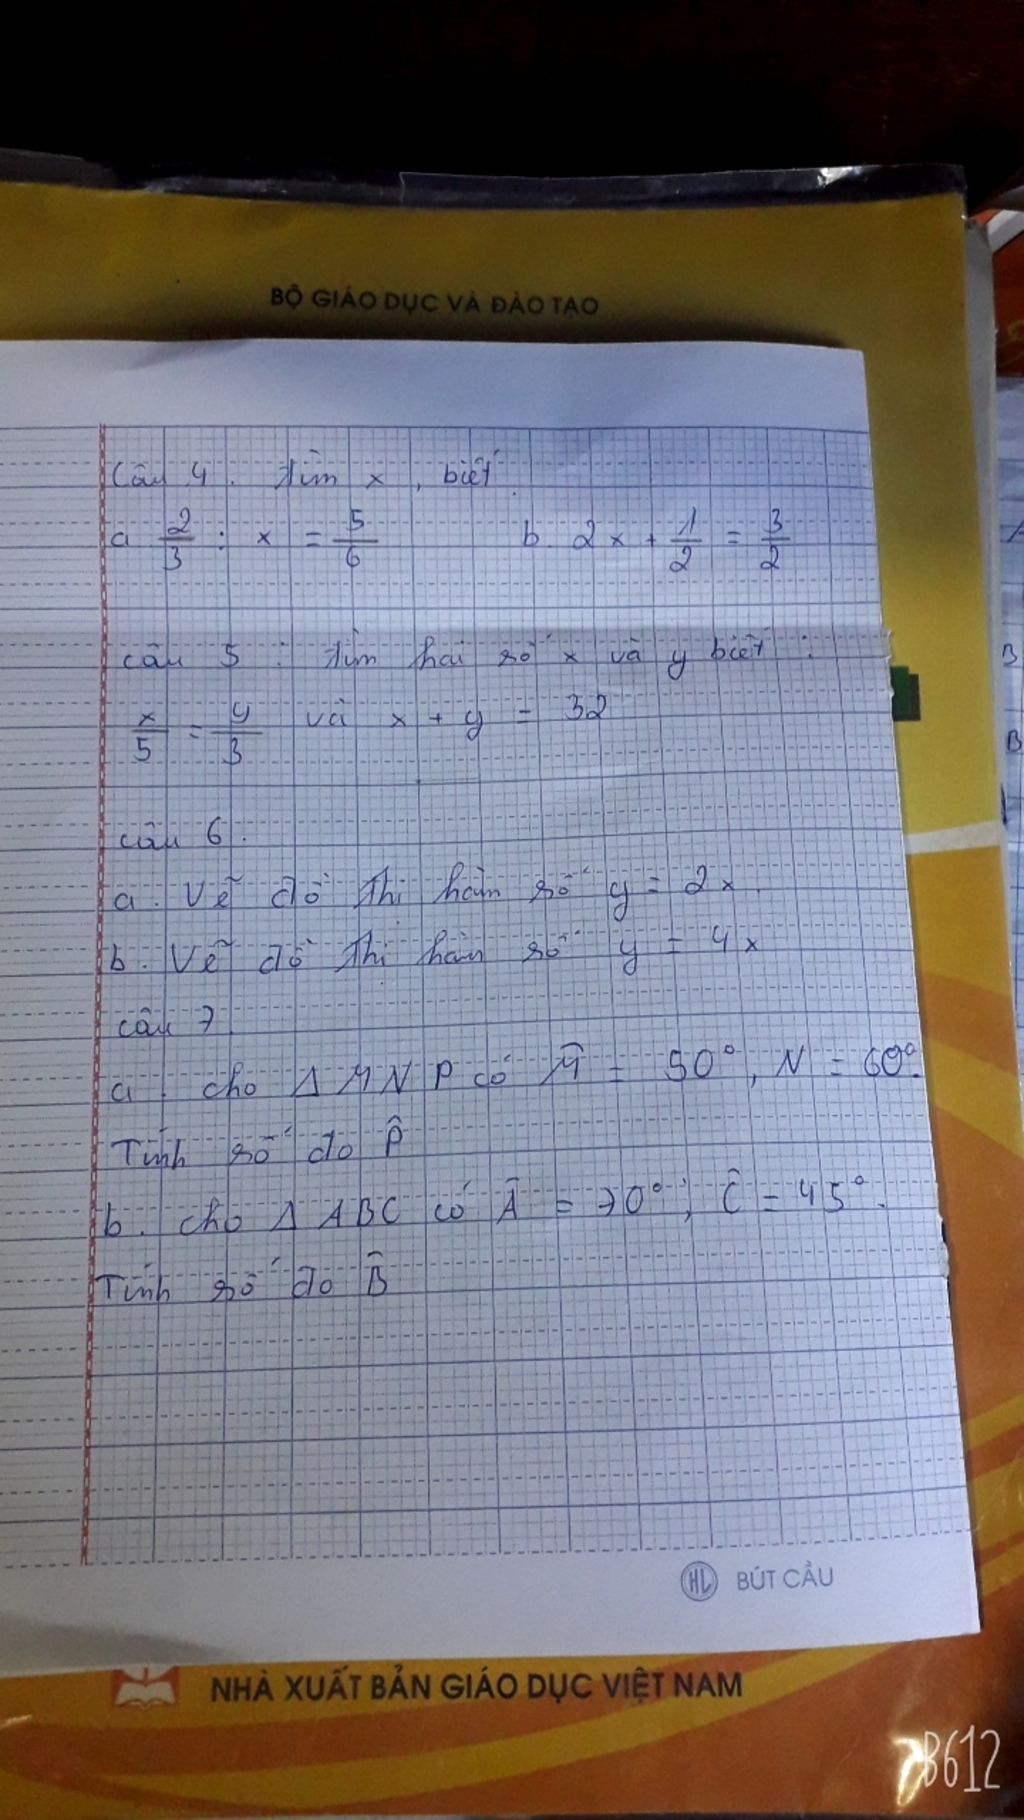 BỘ GIÁO DỤC VÀ ĐÀO TẠO
Câu 4. tìm x, biết
a 2/3 : x = 5/6 b. 2x + 1/2 = 3/2
câu 5 : tìm hai số x và y biết :
x/5 = y/3 và x + y = 32
câu 6.
a. Vẽ đồ thị hàm số y = 2x.
b. Vẽ đồ thị hàm số y = 4x
câu 7
a. cho Δ MNP có M̂ = 50°, N = 60°.
Tính số đo P̂
b. cho Δ ABC có Â = 70°, Ĉ = 45°.
Tính số đo B̂
HL BÚT CẦU
NHÀ XUẤT BẢN GIÁO DỤC VIỆT NAM
B612